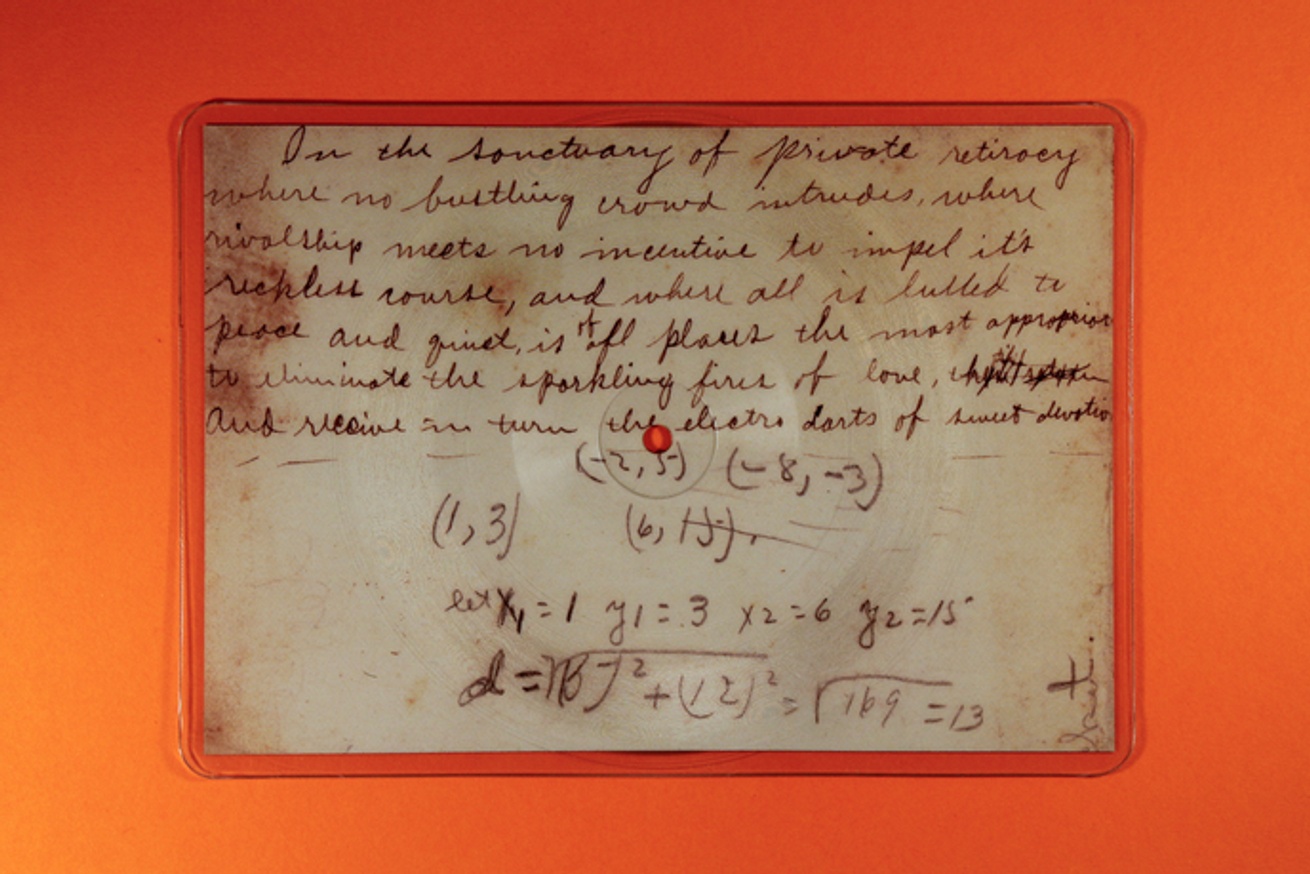 In the sanctuary of private retiracy
where no bustling crowd intrudes, where
rivalship meets no incentive to impel it's
reckless course, and where all is lulled to
peace and quiet, is of all places the most appropriat
to eliminate the sparkling fires of love,
And receive in turn the electro darts of sweet devotio
(-2, 5) (-8, -3)
(1, 3) (6, 15).
let x1 = 1 y1 = 3 x2 = 6 y2 = 15
d = √(5)² + (12)² = √169 = 13